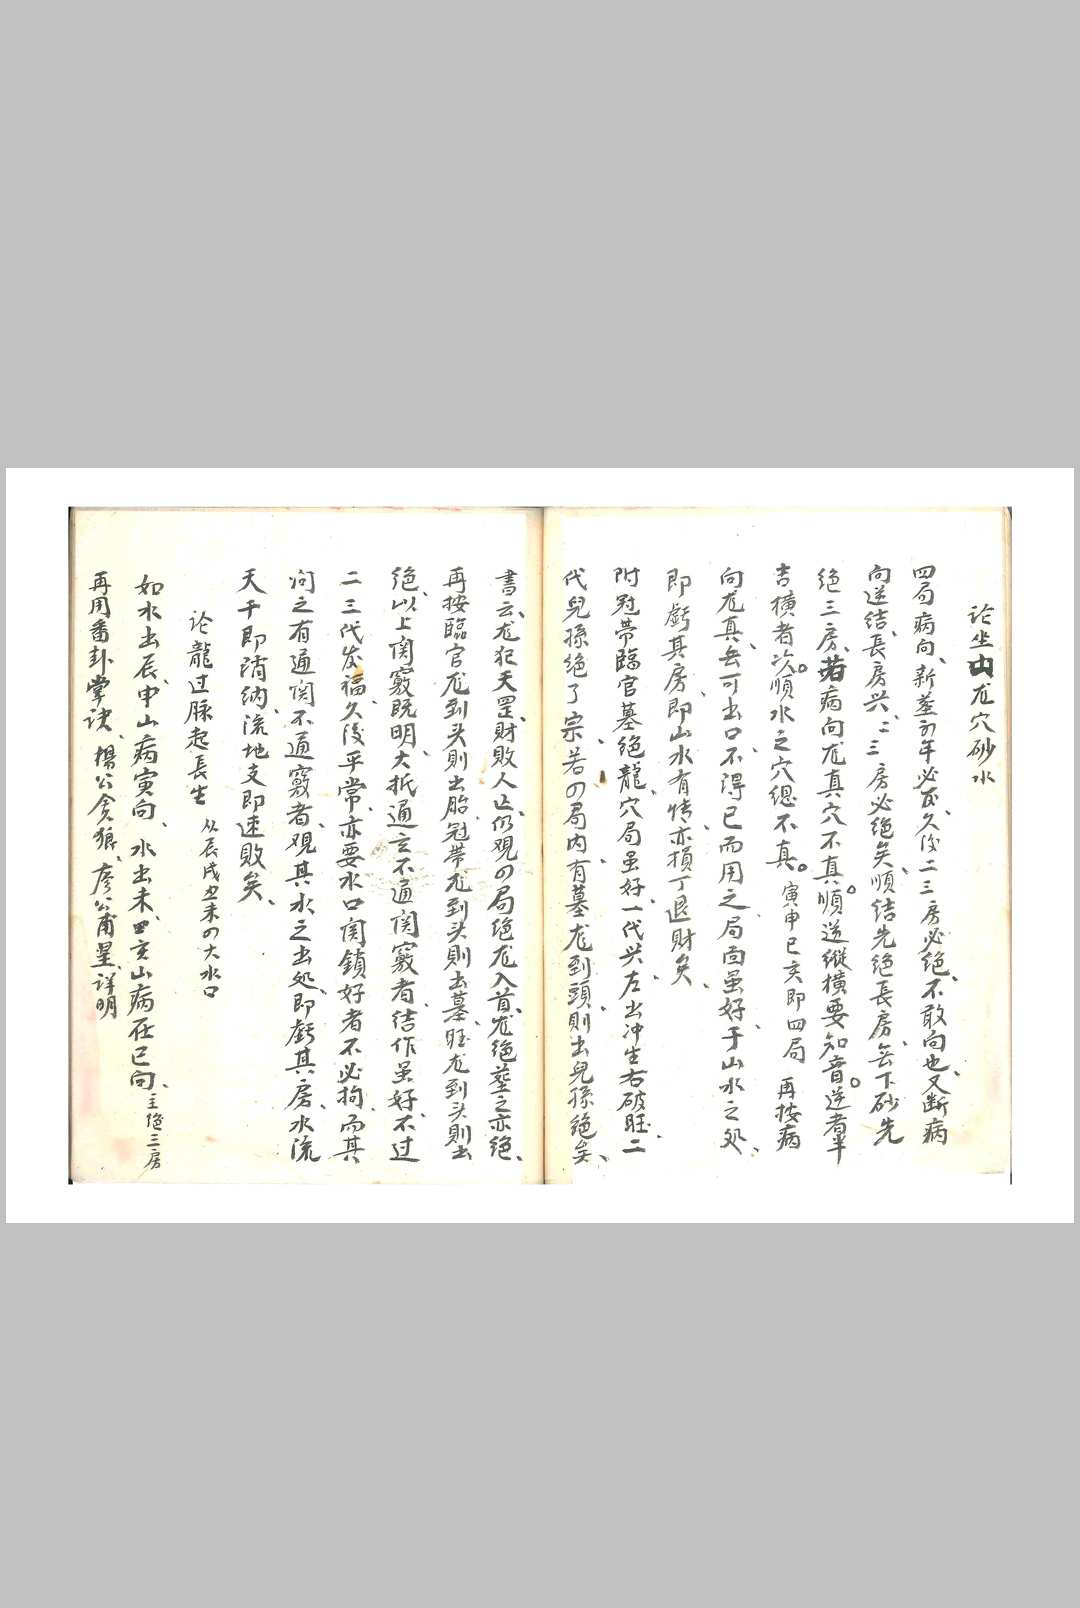 论坐山尨穴砂水
四局病向、新塟初年必、久後二三房必绝、不敢向也、又断病
向逆结、長房兴、二三房必绝矣、順结先绝長房、無下砂先
绝三房、若病向尨真穴不真。順逆縱横要知音。逆者半
吉横者次。順水之穴總不真。寅申巳亥即四局 再按病
向尨真、無可出口、不得已而用之、局面虽好、于山水之处、
即虧其房、即山水有情、亦損丁退財矣、
附冠带臨官墓绝龍、穴局虽好、一代兴、左出冲生右破旺、二
代兒孫绝了宗、若四局内、有墓尨到頭、則出兒孫绝矣、
書云、尨犯天罡、財敗人亡、仍观四局绝尨入首、尨绝塟之亦绝、
再按臨官尨到头則出胎、冠带尨到头則出墓、旺尨到头則出
绝、以上関竅既明、大抵通言不通関竅者、结作虽好、不过
二三代发福、久後平常、亦要水口関鎖好者不必拘、而其
间之有通関不通竅者、观其水之出处、即虧其房、水流
天干即消納、流地支即速敗矣、
论龍过脉起長生 从辰戌丑未四大水口
如水出辰、申山病寅向、水出未、亥山病在巳向、主绝三房
再用番卦掌诀、楊公贪狼、廖公甫星、详明